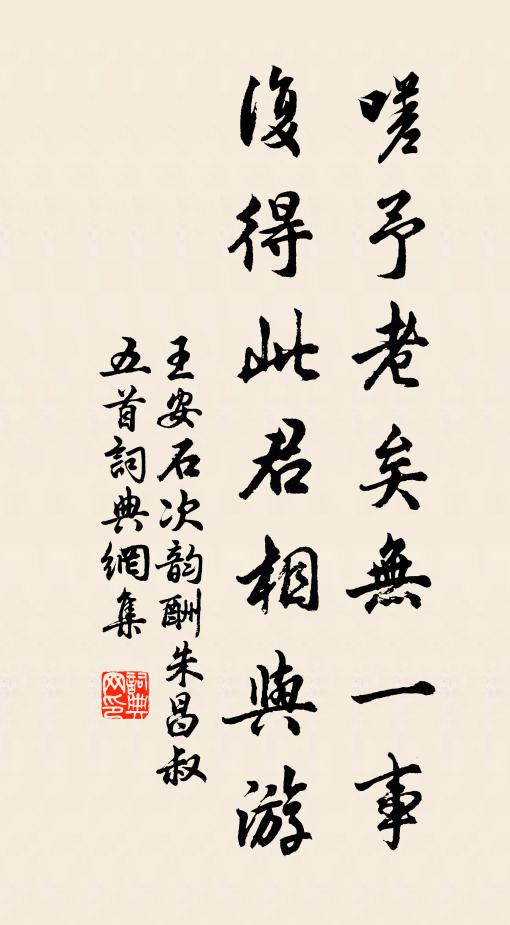 嗟予老矣無一事
復得此君相與游
王安石次韵酬朱昌叔
五首詞典網集
詞典
网印